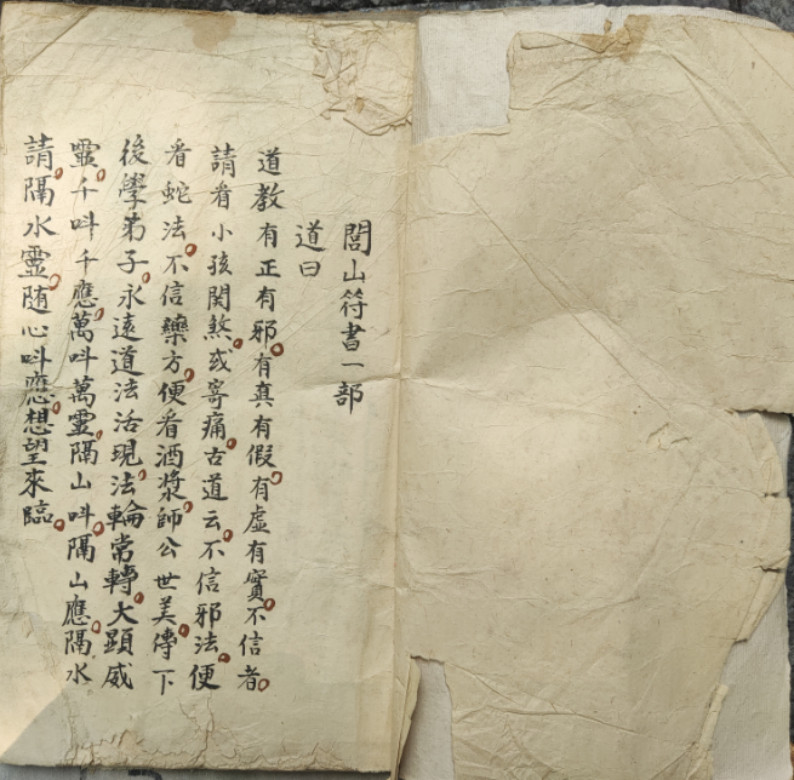 閭山符書一部
道曰
道教有正有邪。有真有假。有虛有實。不信者。
請看小孩関煞。或寄痛。古道云。不信邪法。便
看蛇法。不信藥方。便看酒漿。師公世美傳。下
後學弟子。永遠道法活現。法輪常轉。大顯威
靈。千呌千應。萬呌萬靈。隔山呌。隔山應。隔水
請。隔水靈。随心呌應。想望來臨。